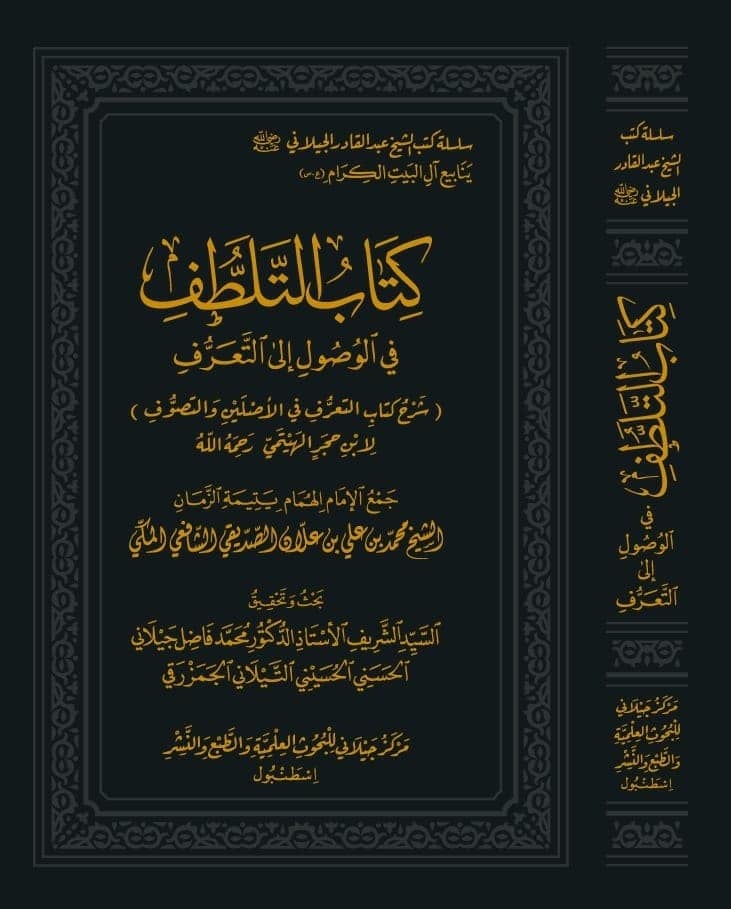 سلسلة كتب الشيخ عبد القادر الجيلاني ﵁
يَنَابيع آلِ البَيتِ الكِرَام (ع.س)
كِتَابُ التَّلَطُّفِ
في الوُصُولِ إلىٰ التَّعَرُّفِ
( شَرْحُ كتابِ التعرُّفِ في الأصْلَيْنِ وَالتصوُّفِ )
لِابْنِ حجرٍ الهَيْتَميّ رَحِمَهُ اللهُ
جَمْعُ الإمَامِ الهُمَامِ يَتِيمَةِ الزَّمَانِ
الشيخ محمد بن علي بن علان الصّديقي الشافعي المكي
بَحْثُ وَتَحْقِيقُ
السَّيِّدِ الشَّرِيفِ الأسْتَاذِ الدُّكْتُورِ مُحَمَّد فَاضِل جَيْلَاني
الحَسَنِي الحُسَيْنِي التَّيْلَاني الجَمَزْرَقي
مَرْكَزُ جَيْلَاني لِلْبُحُوثِ العِلْمِيَّةِ وَالطَّبْعِ وَالنَّشْرِ
إسْطَنْبُول
سلسلة كتب
الشيخ عبد القادر
الجيلاني ﵁
كِتَابُ التَّلَطُّفِ
في
الوُصُولِ
إلىٰ
التَّعَرُّفِ
مَرْكَزُ جَيْلَاني
لِلْبُحُوثِ العِلْمِيَّةِ
وَالطَّبْعِ وَالنَّشْرِ
إسْطَنْبُول